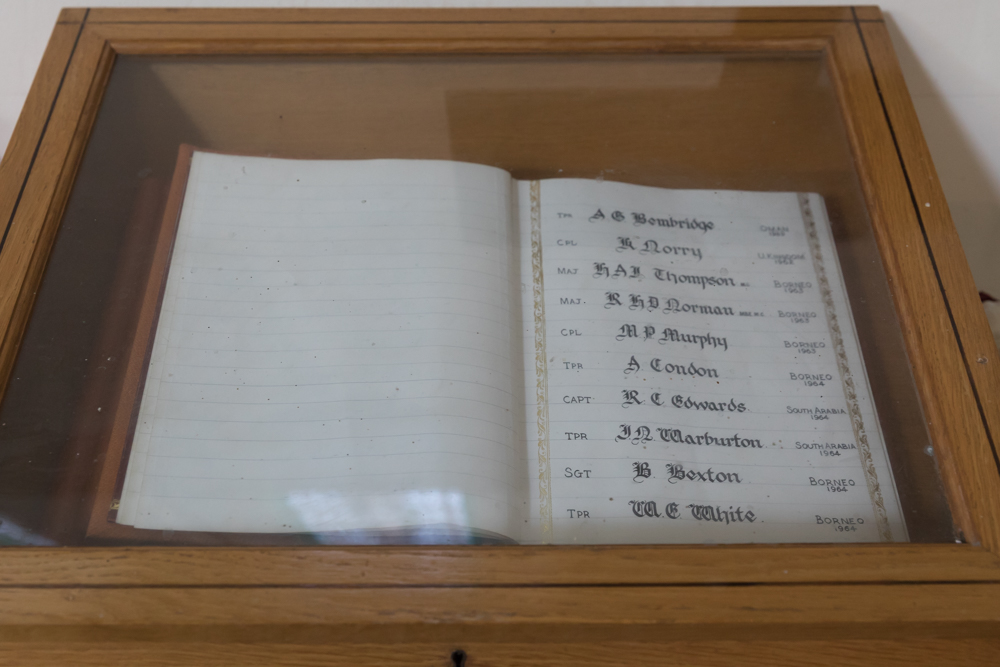 TPR A G Bembridge OMAN
CPL K Norry U.KINGDOM 1963
MAJ H A I Thompson MC BORNEO 1963
MAJ. R H D Norman MBE. M.C. BORNEO 1963
CPL M P Murphy BORNEO 1963
TPR A Condon BORNEO 1964
CAPT R C Edwards SOUTH ARABIA 1964
TPR J N Warburton SOUTH ARABIA 1964
SGT B Bexton BORNEO 1964
TPR W. E White BORNEO 1964